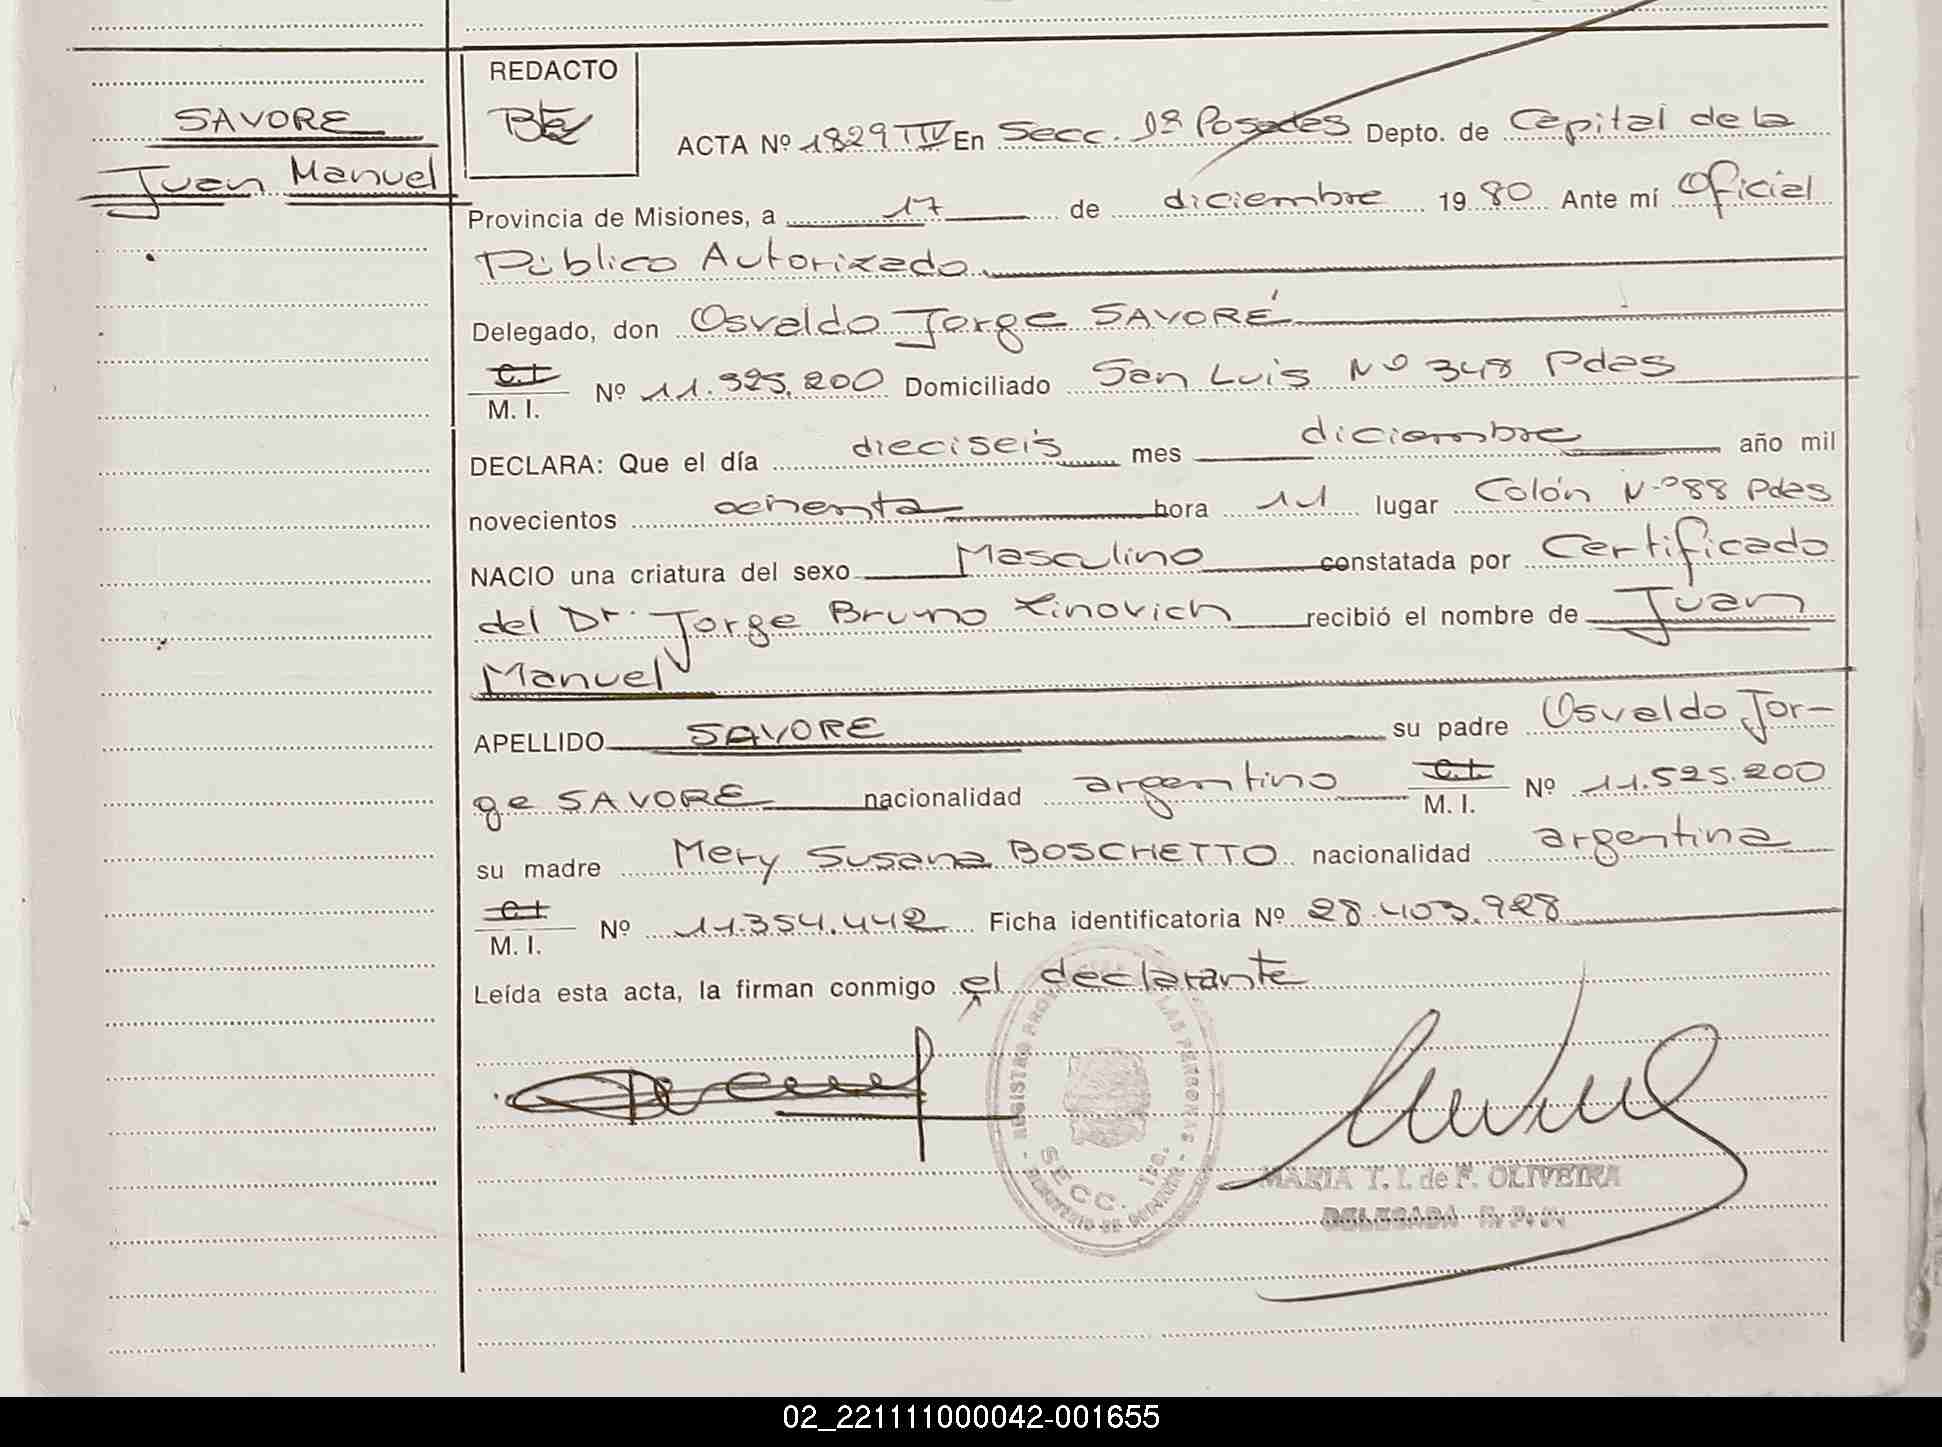 SAVORE
Juan Manuel
REDACTO
ACTA Nº 1829 TIV En Secc. 1ª Posadas Depto. de Capital de la
Provincia de Misiones, a 17 de diciembre 1980 Ante mí Oficial
Público Autorizado
Delegado, don Osvaldo Jorge SAVORÉ
C.I. M. I. Nº 11.525.200 Domiciliado San Luis Nº 348 Pdas
DECLARA: Que el día dieciseis mes diciembre año mil
novecientos ochenta hora 11 lugar Colón Nº 88 Pdas
NACIO una criatura del sexo Masculino constatada por Certificado
del Dr. Jorge Bruno Zinovich recibió el nombre de Juan
Manuel
APELLIDO SAVORE su padre Osvaldo Jor-
ge SAVORE nacionalidad argentino C.I. M. I. Nº 11.525.200
su madre Mery Susana BOSCHETTO nacionalidad argentina
C.I. M. I. Nº 11.354.442 Ficha identificatoria Nº 28.403.928
Leída esta acta, la firman conmigo el declarante
REGISTRO LAS PERSONAS
SECC. 1ra.
MARIA T. I. de F. OLIVEIRA
DELEGADA R. P. P.
02_221111000042-001655